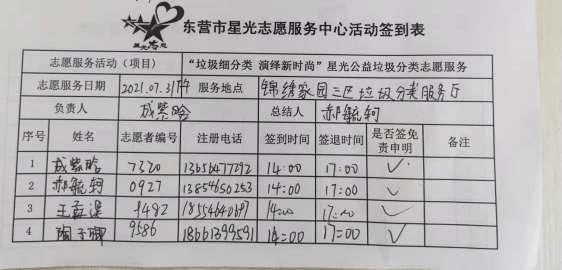 东营市星光志愿服务中心活动签到表
志愿服务活动（项目） “垃圾细分类 演绎新时尚”星光公益垃圾分类志愿服务
志愿服务日期 2021.07.31下午 服务地点 锦绣家园三区垃圾分类服务厅
负责人 成紫晗 总结人 郝毓轲
序号 姓名 志愿者编号 注册电话 签到时间 签退时间 是否签免责申明 备注
1 成紫晗 7320 13656477292 14:00 17:00 ✓
2 郝毓轲 0927 13854650253 14:00 17:00 ✓
3 王孟湜 1492 18554640697 14:00 17:00 ✓
4 陶子卿 9586 18661399591 14:00 17:00 ✓